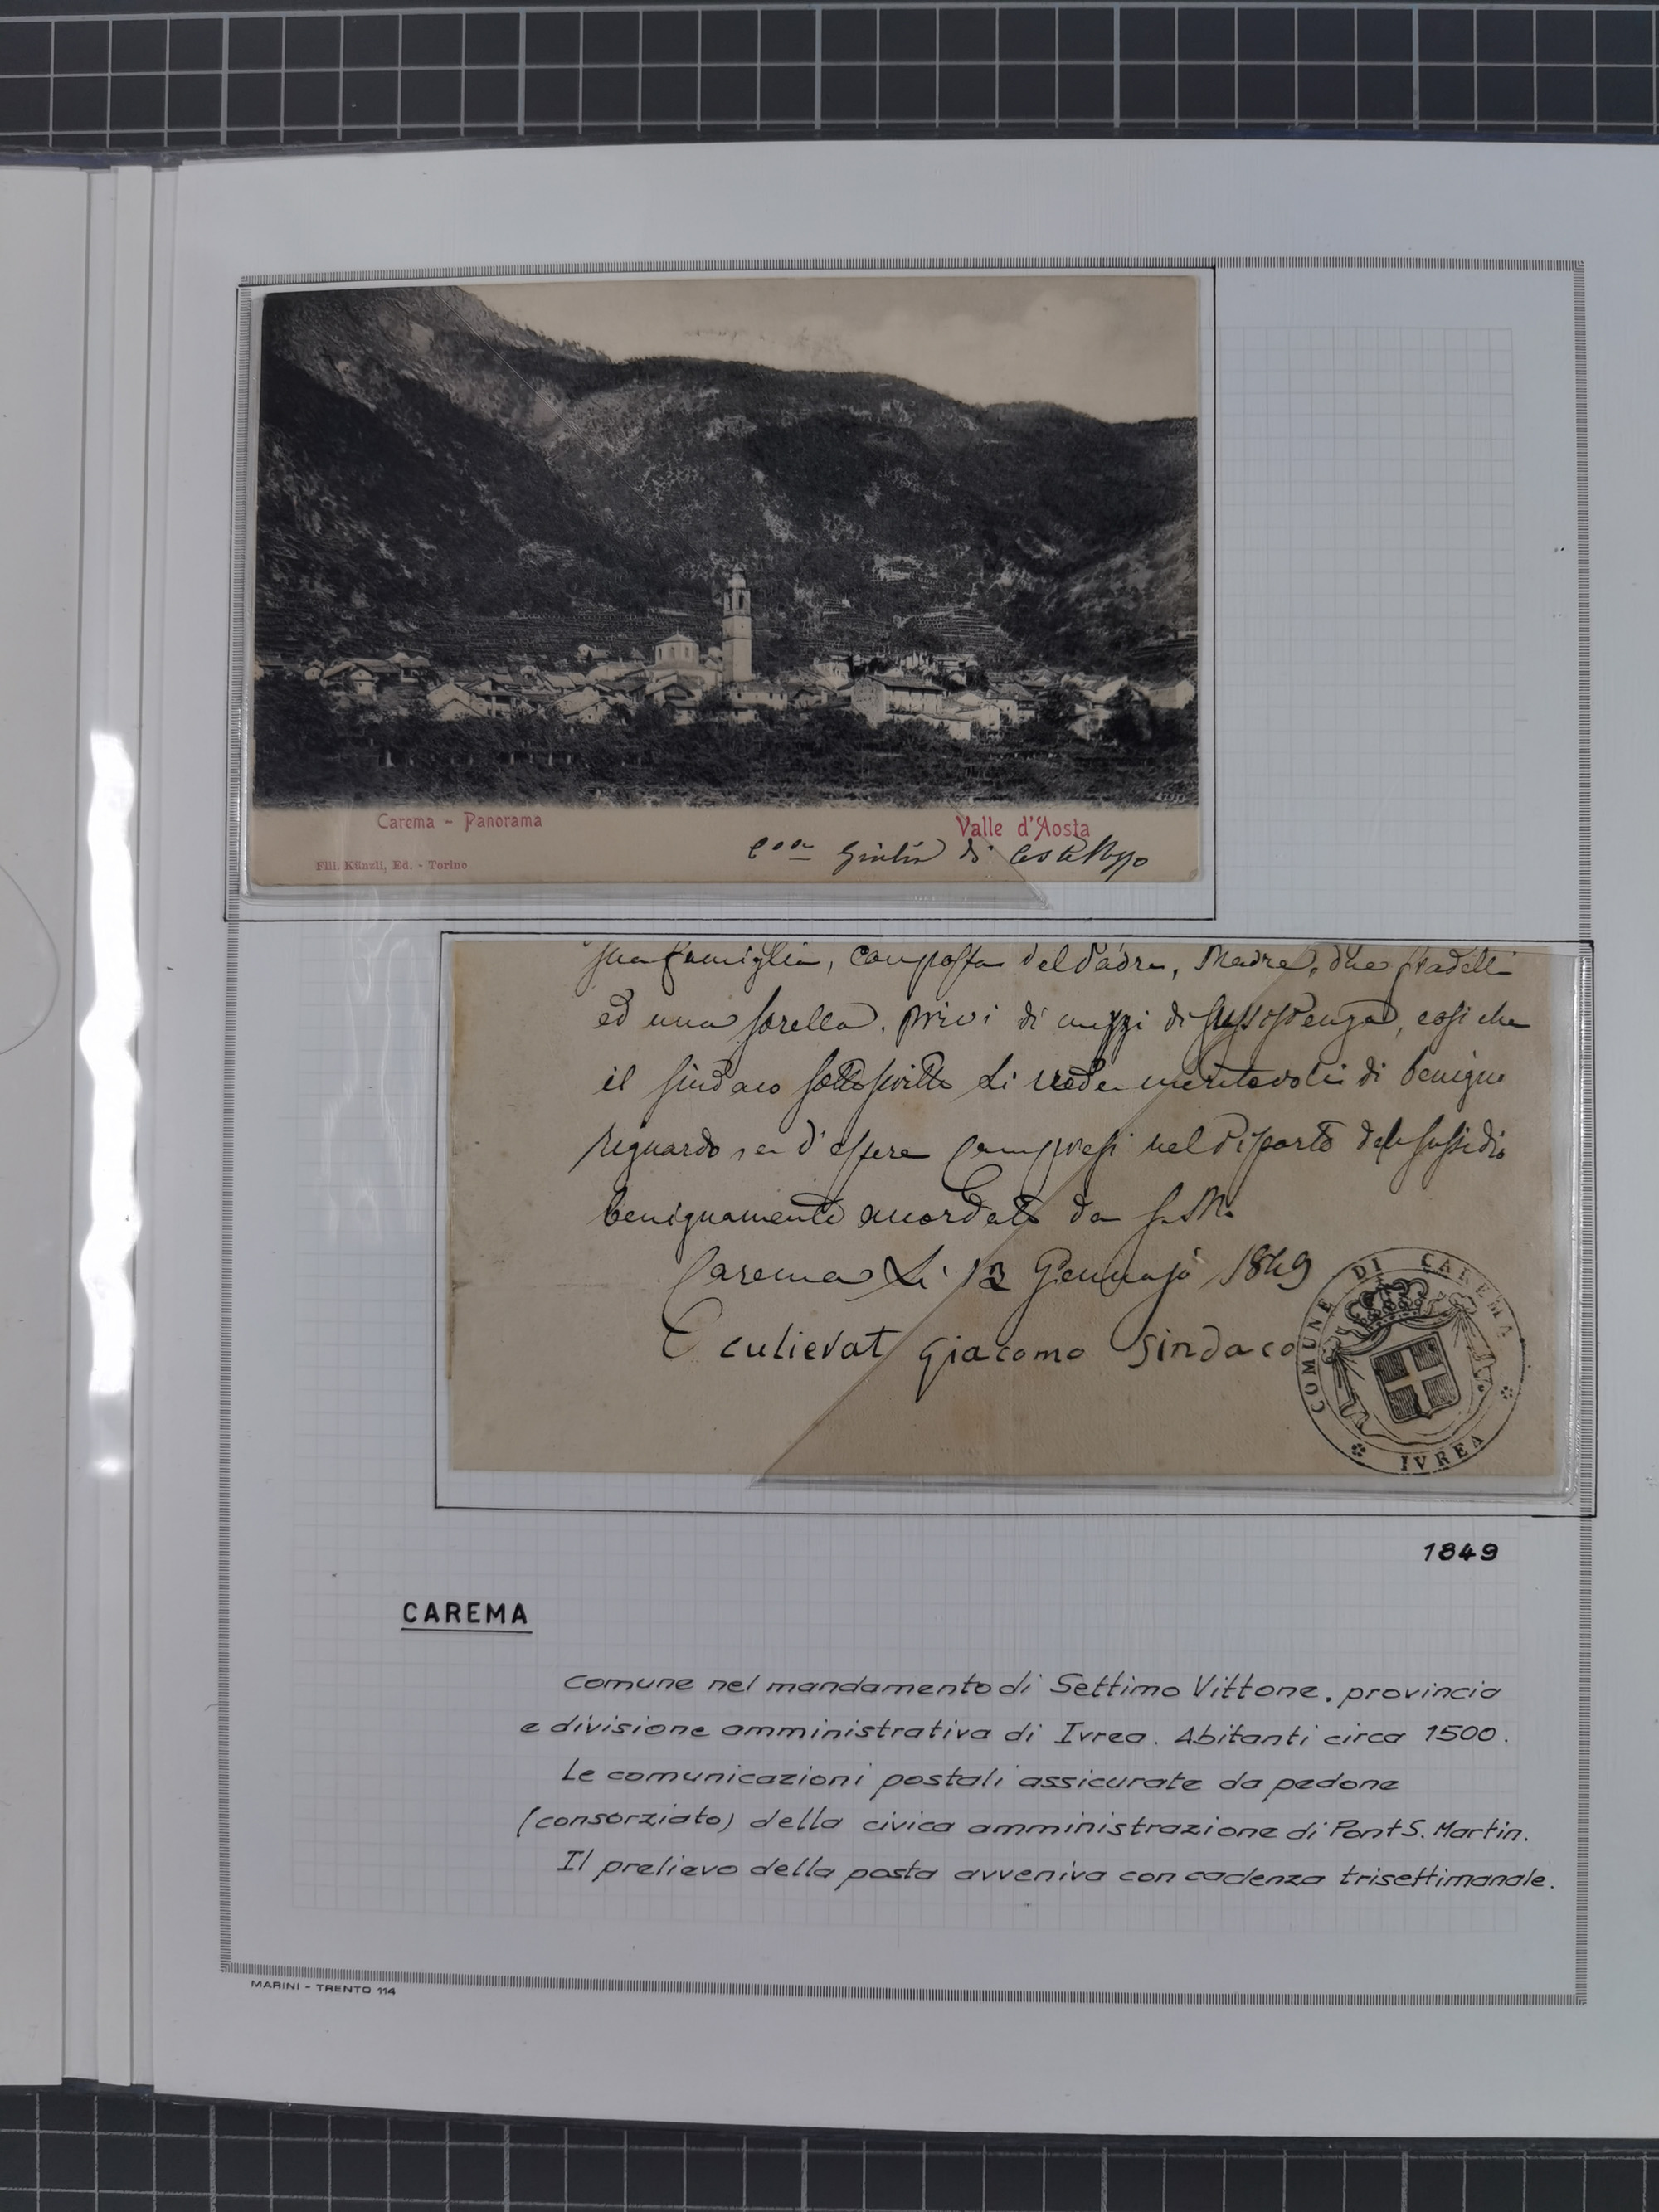 Carema - Panorama
Valle d'Aosta
Giulia di
Flli. Künzli, Ed. - Torino
sua famiglia, composta del Padre, Madre, due fratelli
ed una sorella, privi di mezzi di sussistenza, così che
il sindaco sottoscritto li crede meritevoli di benigno
riguardo, e d'essere compresi nel riparto del sussidio
benignamente accordato da S. M.
Carema Li 12 Gennajo 1849
Giacomo Sindaco
COMUNE DI CAREMA
IVREA
1849
CAREMA
Comune nel mandamento di Settimo Vittone, provincia
e divisione amministrativa di Ivrea. Abitanti circa 1500.
Le comunicazioni postali assicurate da pedone
(consorziato) della civica amministrazione di Pont S. Martin.
Il prelievo della posta avveniva con cadenza trisettimanale.
MARINI - TRENTO 114